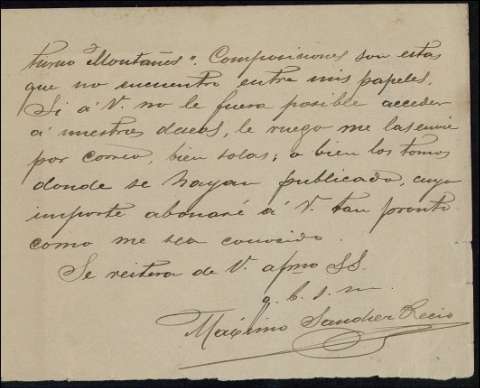 turno Montañés". Composiciones son estas
que no encuentro entre mis papeles.
Si á V. no le fuera posible acceder
á nuestros deseos, le ruego me las envie
por correo, bien solas; o bien los tomos
donde se hayan publicado, cuyo
importe abonaré á V. tan pronto
como me sea conocido.
Se reitera de V. afmo SS.
q. b. s. m.
Máximo Sanchez Recio